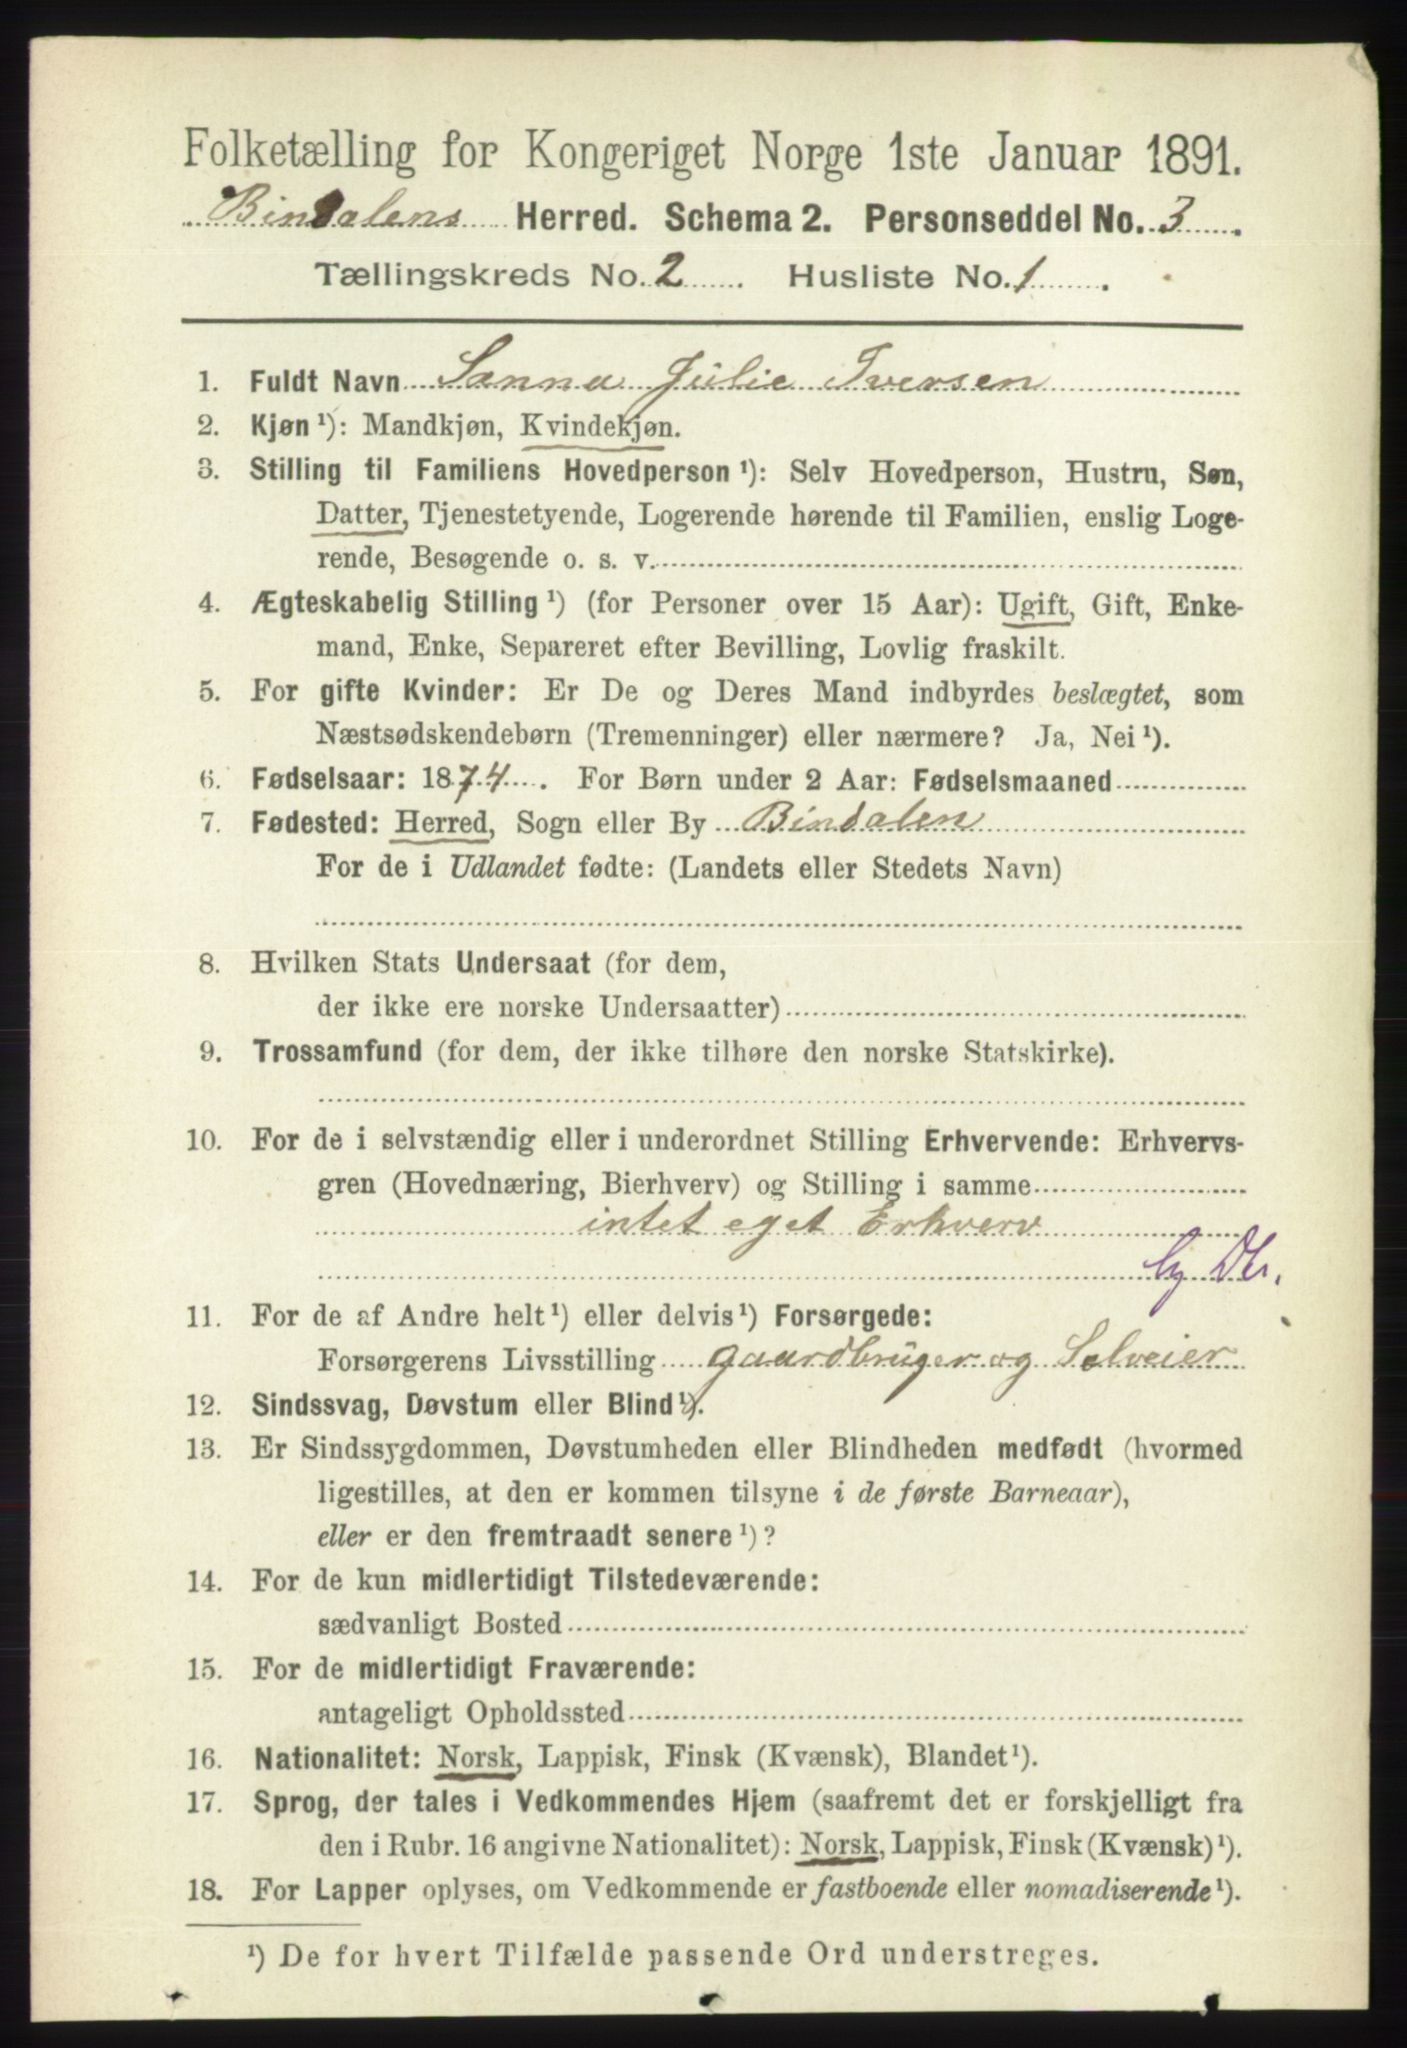 Folketælling for Kongeriget Norge 1ste Januar 1891.
Bindalens Herred. Schema 2. Personseddel No. 3.
Tællingskreds No. 2. Husliste No. 1.
1. Fuldt Navn Sanna Julie Iversen
2. Kjøn ¹): Mandkjøn, Kvindekjøn.
3. Stilling til Familiens Hovedperson ¹): Selv Hovedperson, Hustru, Søn,
Datter, Tjenestetyende, Logerende hørende til Familien, enslig Loge-
rende, Besøgende o. s. v.
4. Ægteskabelig Stilling ¹) (for Personer over 15 Aar): Ugift, Gift, Enke-
mand, Enke, Separeret efter Bevilling, Lovlig fraskilt.
5. For gifte Kvinder: Er De og Deres Mand indbyrdes beslægtet, som
Næstsødskendebørn (Tremenninger) eller nærmere? Ja, Nei ¹).
6. Fødselsaar: 1874. For Børn under 2 Aar: Fødselsmaaned
7. Fødested: Herred, Sogn eller By Bindalen
For de i Udlandet fødte: (Landets eller Stedets Navn)
8. Hvilken Stats Undersaat (for dem,
der ikke ere norske Undersaatter)
9. Trossamfund (for dem, der ikke tilhøre den norske Statskirke).
10. For de i selvstændig eller i underordnet Stilling Erhvervende: Erhvervs-
gren (Hovednæring, Bierhverv) og Stilling i samme
intet eget Erhverv
11. For de af Andre helt ¹) eller delvis ¹) Forsørgede:
Forsørgerens Livsstilling gaardbruger og Selveier
12. Sindssvag, Døvstum eller Blind ¹).
13. Er Sindssygdommen, Døvstumheden eller Blindheden medfødt (hvormed
ligestilles, at den er kommen tilsyne i de første Barneaar),
eller er den fremtraadt senere ¹)?
14. For de kun midlertidigt Tilstedeværende:
sædvanligt Bosted
15. For de midlertidigt Fraværende:
antageligt Opholdssted
16. Nationalitet: Norsk, Lappisk, Finsk (Kvænsk), Blandet ¹).
17. Sprog, der tales i Vedkommendes Hjem (saafremt det er forskjelligt fra
den i Rubr. 16 angivne Nationalitet): Norsk, Lappisk, Finsk (Kvænsk) ¹).
18. For Lapper oplyses, om Vedkommende er fastboende eller nomadiserende ¹).
¹) De for hvert Tilfælde passende Ord understreges.